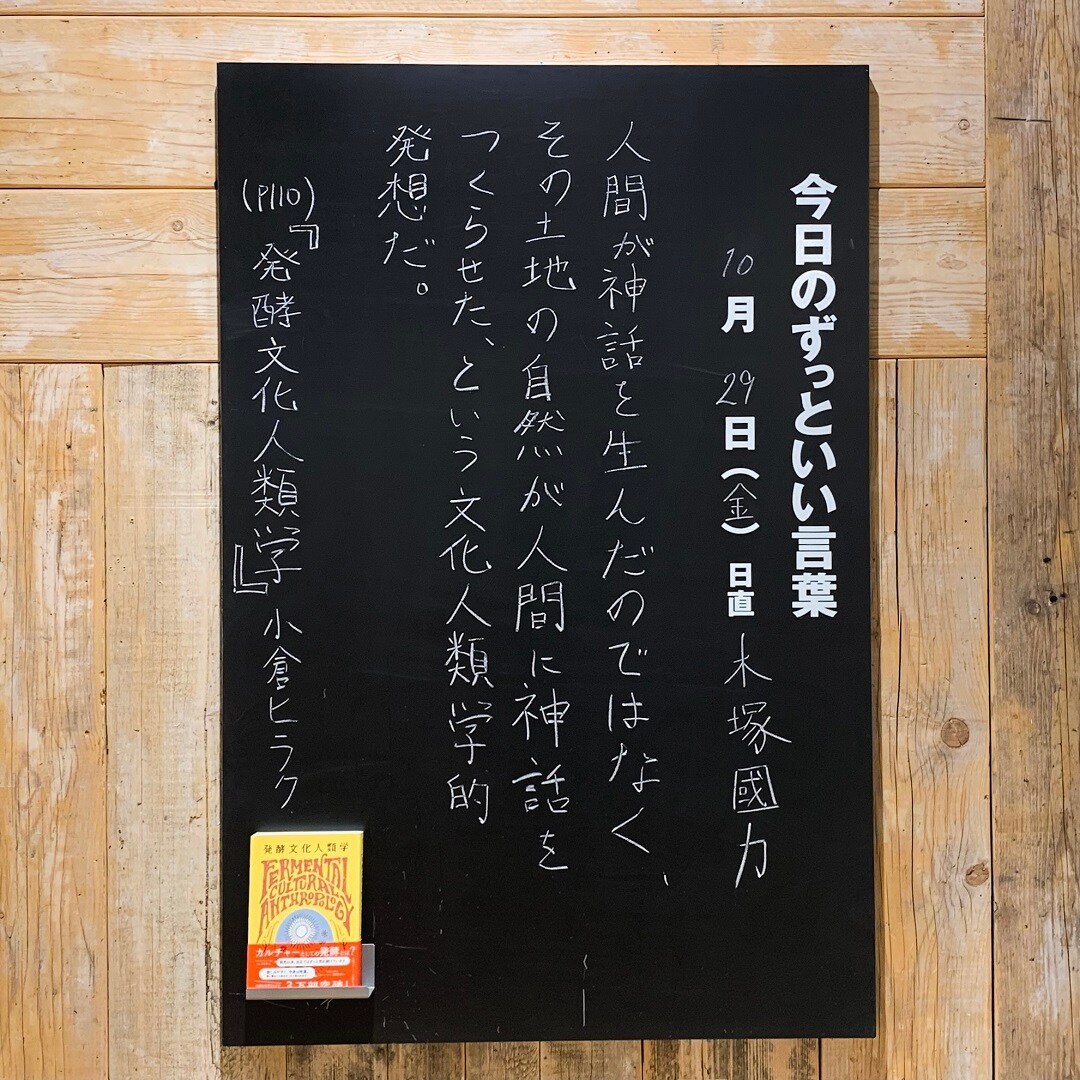 今日のずっといい言葉
10月29日(金)日直 木塚國力
人間が神話を生んだのではなく、
その土地の自然が人間に神話を
つくらせた、という文化人類学的
発想だ。
(P110)
『発酵文化人類学』小倉ヒラク
発酵文化人類学
FERMENTAL
CULTURAL
ANTHROPOLOGY
カルチャーとしての発酵とは?